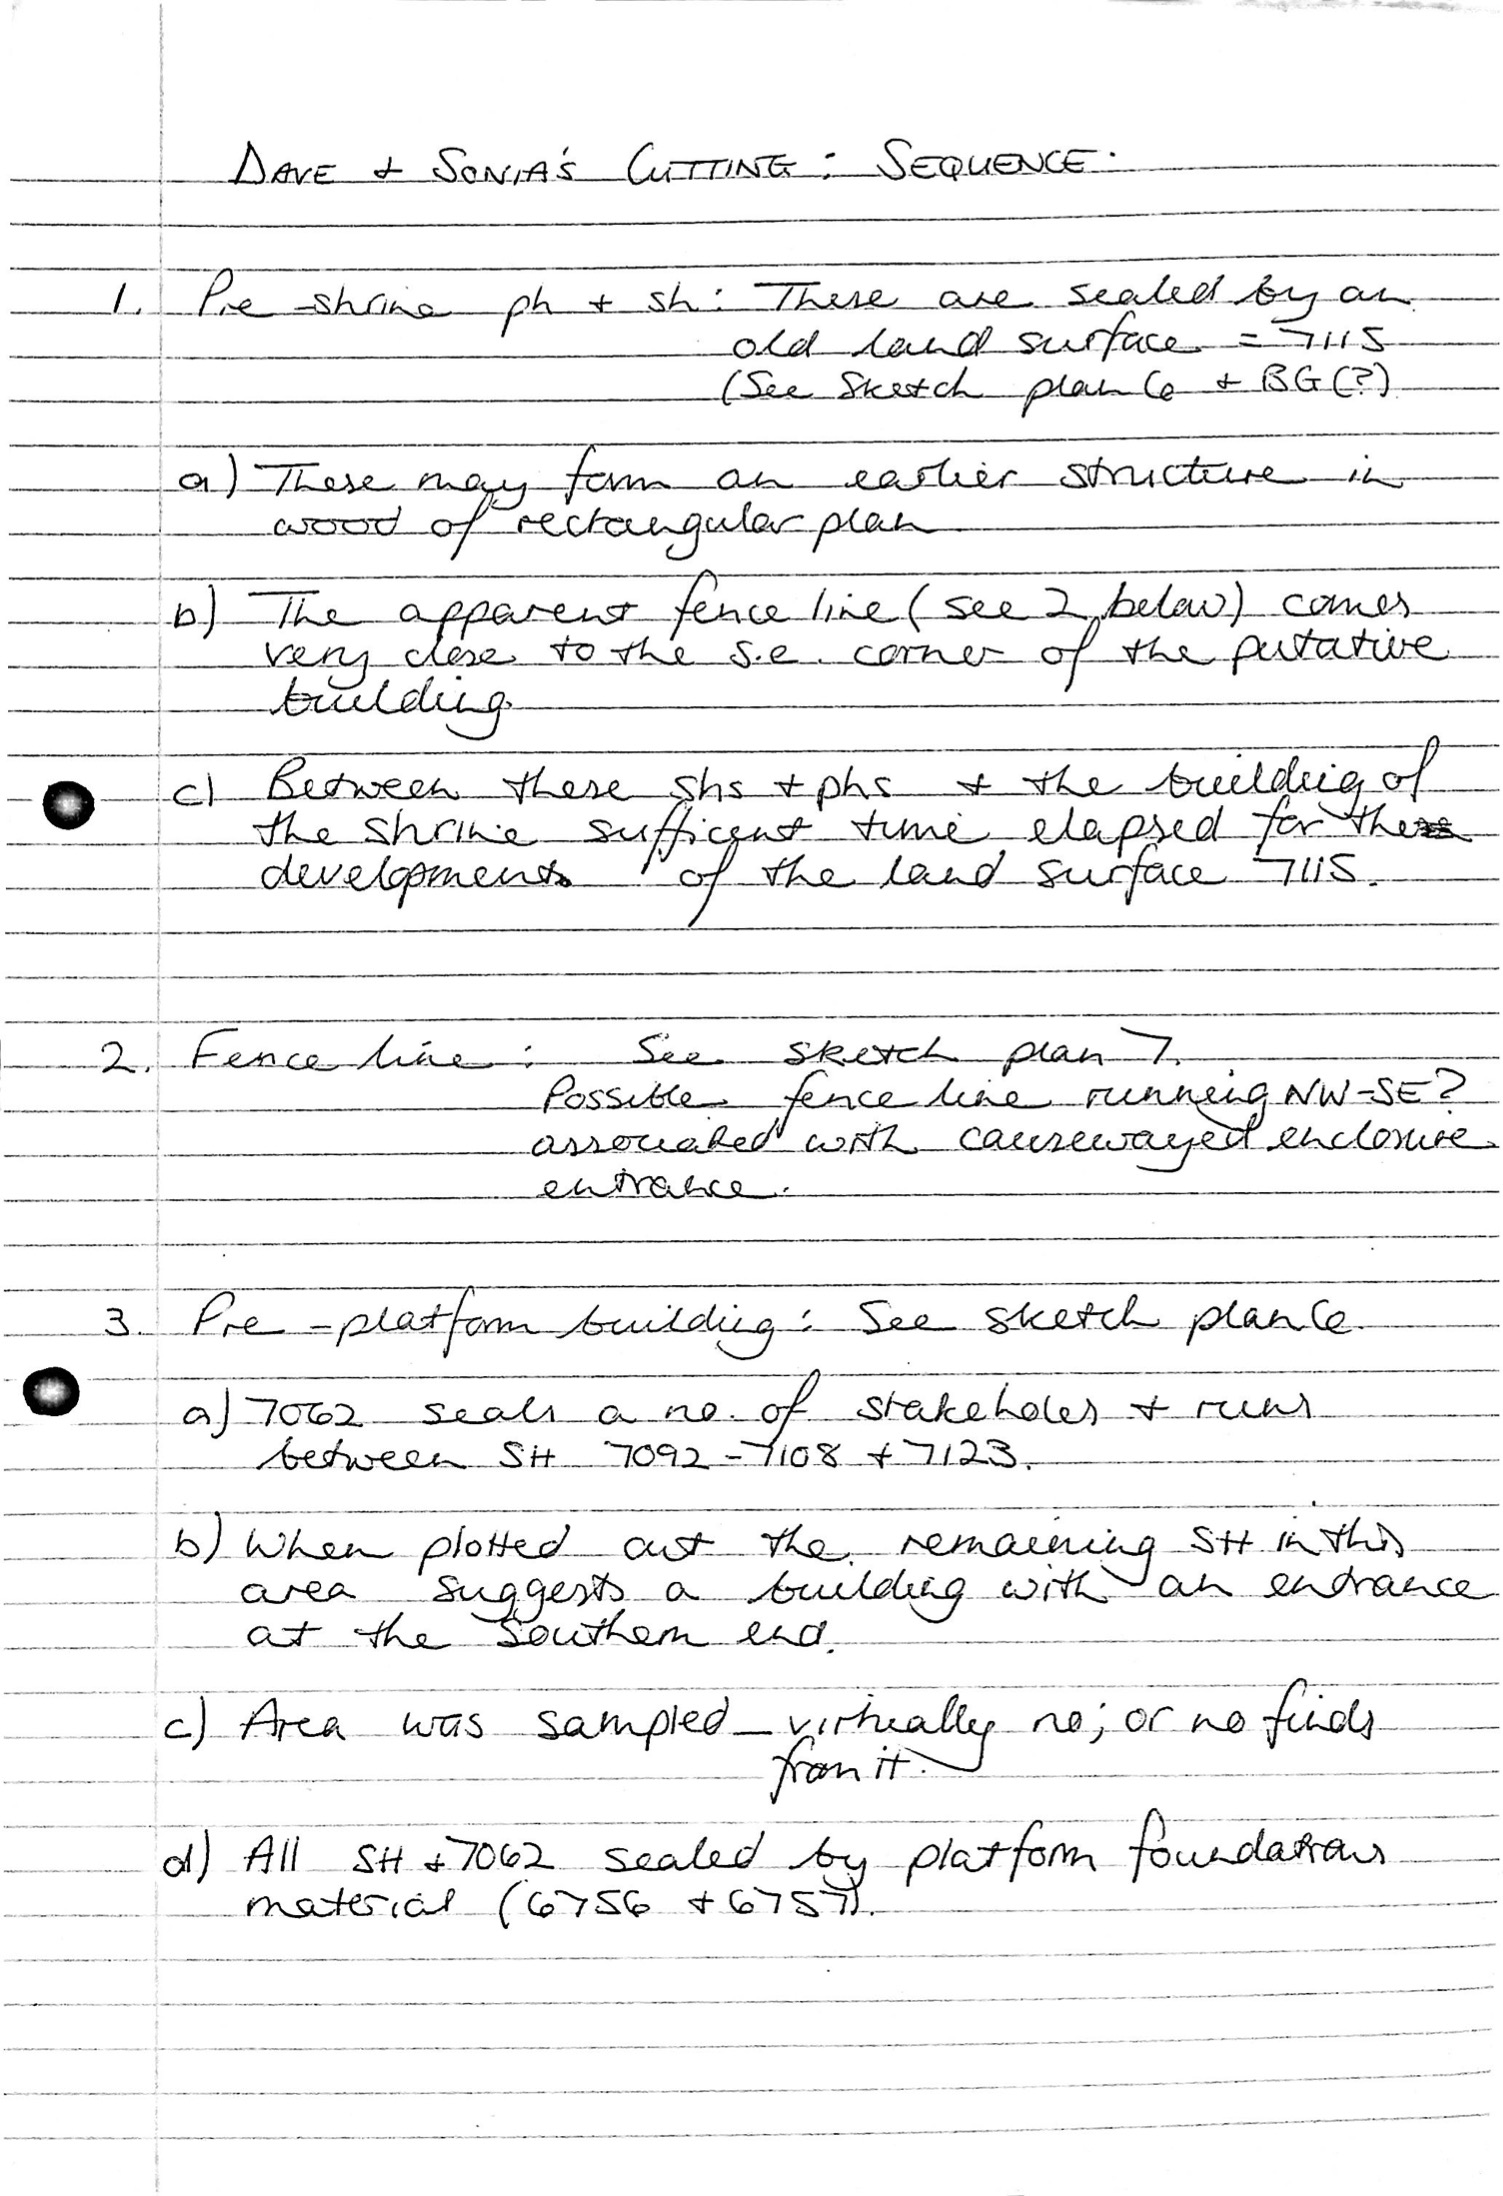 DAVE + SONIA'S CUTTING: SEQUENCE:
1. Pre-shrine ph + sh: These are sealed by an
old land surface = 7115
(See Sketch plan 6 + BG(?)
a) These may form an earlier structure in
wood of rectangular plan
b) The apparent fence line (see 2 below) comes
very close to the s.e. corner of the putative
building.
c) Between these shs + phs + the building of
the shrine sufficent time elapsed for the
development of the land surface 7115.
2. Fence line: See sketch plan 7.
Possible fence line running NW-SE?
associated with causewayed enclosure
entrance.
3. Pre-platform building: See sketch plan 6
a) 7062 seals a no. of stakeholes + runs
between SH 7092-7108 + 7123.
b) When plotted out the remaining SH in this
area suggests a building with an entrance
at the Southern end.
c) Area was sampled - virtually no; or no finds
from it.
d) All SH + 7062 sealed by platform foundations
material (6756 + 6757).